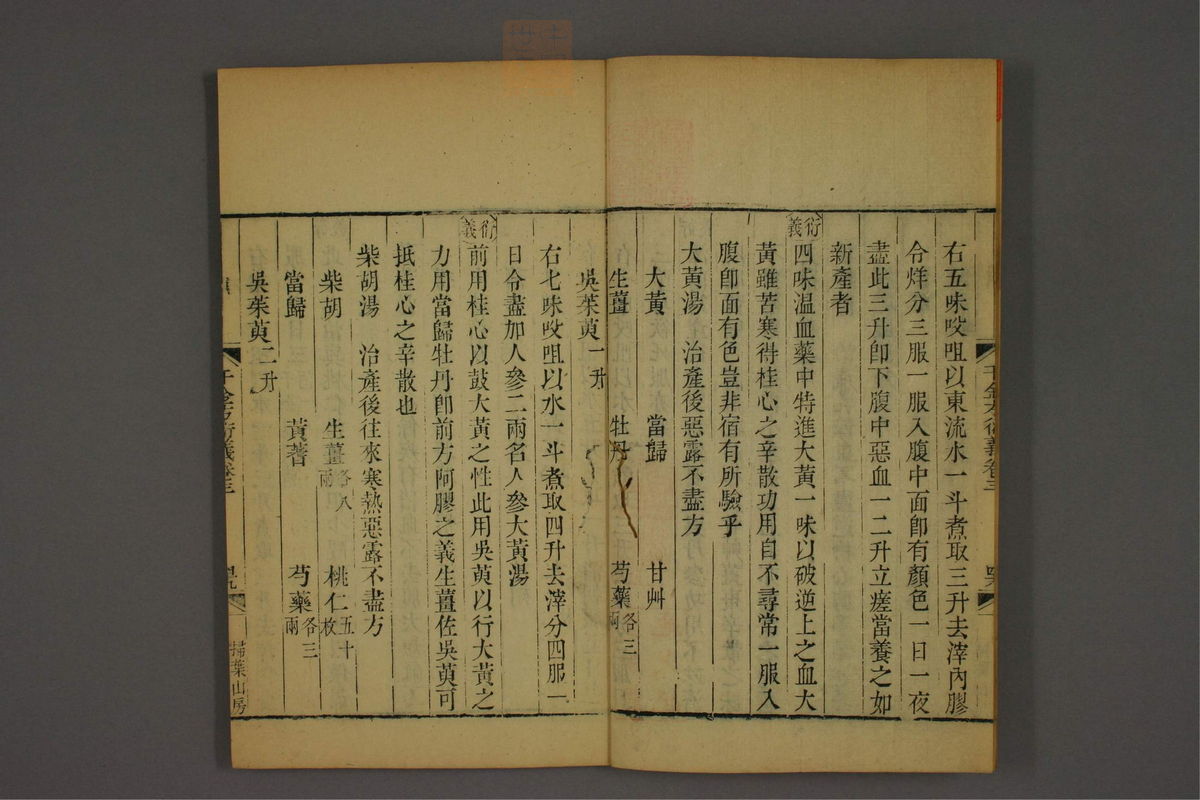 右五味㕮咀以東流水一斗煮取三升去滓內膠
令烊分三服一服入腹中面卽有顏色一日一夜
盡此三升卽下腹中惡血一二升立瘥當養之如
新產者
衍義
四味温血藥中特進大黃一味以破逆上之血大
黃雖苦寒得桂心之辛散功用自不尋常一服入
腹卽面有色豈非宿有所驗乎
大黃湯　治產後惡露不盡方
大黃　當歸　甘艸
生薑　牡丹　芍藥各三兩
吳茱萸一升
右七味㕮咀以水一斗煮取四升去滓分四服一
日令盡加人參二兩名人參大黃湯
衍義
前用桂心以鼓大黃之性此用吳萸以行大黃之
力用當歸牡丹卽前方阿膠之義生薑佐吳萸可
抵桂心之辛散也
柴胡湯　治產後往來寒熱惡露不盡方
柴胡　生薑各八兩　桃仁五十枚
當歸　黃蓍　芍藥各三兩
吳茱萸二升
千金方衍義卷三
掃葉山房